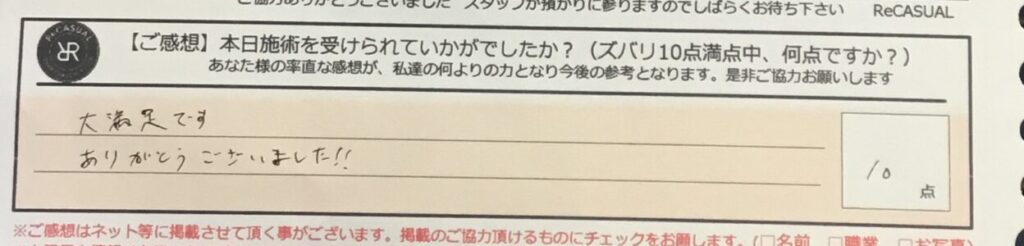 ご協力ありがとうございました スタッフが預かりに参りますのでしばらくお待ち下さい ReCASUAL
ReCASUAL
【ご感想】本日施術を受けられていかがでしたか？（ズバリ10点満点中、何点ですか？）
あなた様の率直な感想が、私達の何よりの力となり今後の参考となります。是非ご協力お願いします
大満足です
ありがとうございました!!
10
点
※ご感想はネット等に掲載させて頂く事がございます。掲載のご協力頂けるものにチェックをお願します。(□名前 □職業 □お写真)